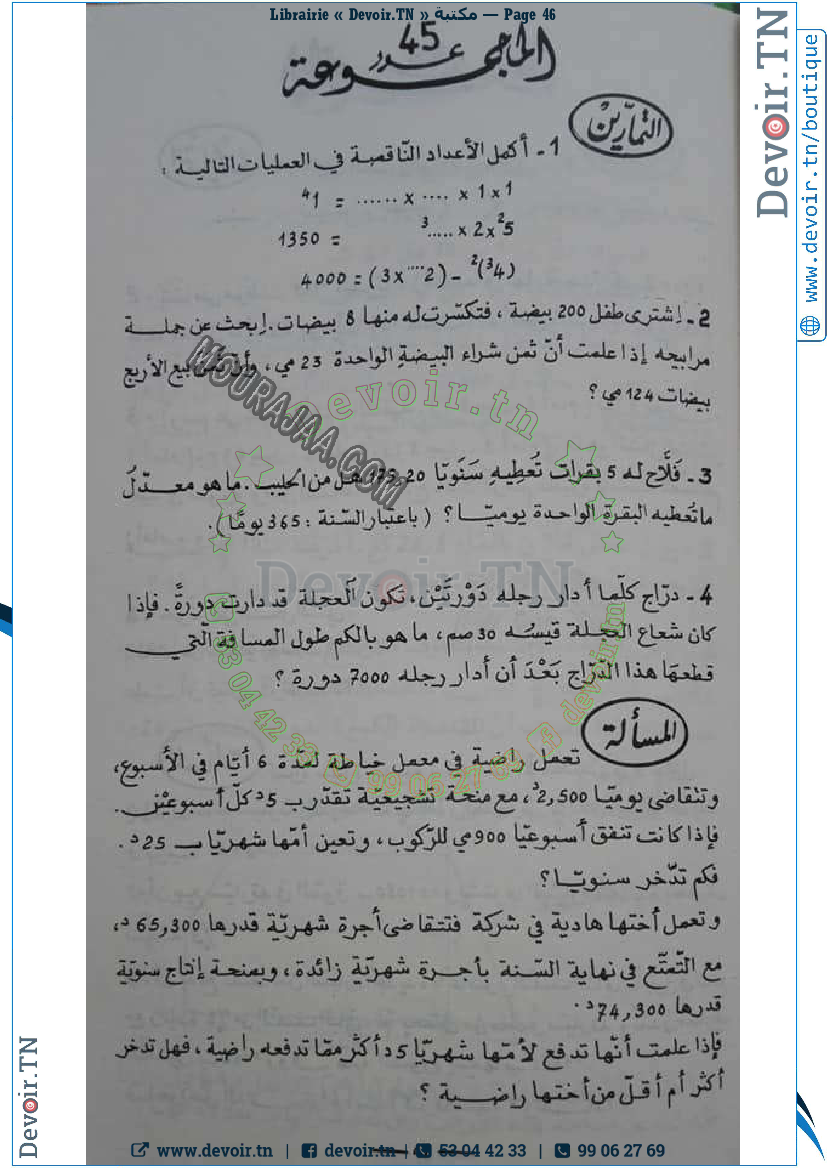 Librairie « Devoir.TN » مكتبة — Page 46
المجموعة عدد 45
التمارين
1 - أكمل الأعداد الناقصة في العمليات التالية :
1 × 1 × .... × ...... = 1⁴
5² × 2 × .....³ = 1350
(4³)² - (2.... × 3) = 4000
2 - إشترى طفل 200 بيضة ، فتكسّرت له منها 8 بيضات . إبحث عن جملة
مرابيحه إذا علمت أنّ ثمن شراء البيضة الواحدة 23 مي ، وأنّ ثمن بيع الأربع
بيضات 124 مي ؟
3 - فلّاح له 5 بقرات تُعطيه سَنَويّا 175,20 هل من الحليب . ما هو معدّلُ
ما تُعطيه البقرة الواحدة يوميّا ؟ ( باعتبار السّنة : 365 يومًا ) .
4 - درّاج كلّما أدار رجله دَوْرتَيْن ، تكون العجلة قد دارت دورةً . فإذا
كان شعاع العجلة قيسُه 30 صم ، ما هو بالكم طول المسافة الّتي
قطعها هذا الدّراج بَعْدَ أن أدار رجله 7000 دورة ؟
المسألة
تعمل راضية في معمل خياطة لمدّة 6 أيّام في الأسبوع ،
وتتقاضى يوميّا 2,500د ، مع منحة تشجيعيّة تقدّر بـ 5د كلّ أسبوعيْن .
فإذا كانت تنفق أسبوعيّا 900 مي للرّكوب ، وتعين أمّها شهريّا بـ 25د .
فكم تدّخر سنويّا ؟
وتعمل أختها هادية في شركة فتتقاضى أجرة شهريّة قدرها 65,300 د ،
مع التّمتّع في نهاية السّنة بأجرة شهريّة زائدة ، وبمنحة إنتاج سنويّة
قدرها 74,300د .
فإذا علمت أنّها تدفع لأمّها شهريّا 5د أكثر ممّا تدفعه راضية ، فهل تدخر
أكثر أم أقلّ من أختها راضية ؟
MOURAJAA.COM
Devoir.tn
Devoir.TN
53 04 42 33
99 06 27 69
devoir.tn
Devoir.TN
www.devoir.tn/boutique
Devoir.TN
www.devoir.tn | devoir.tn | 53 04 42 33 | 99 06 27 69